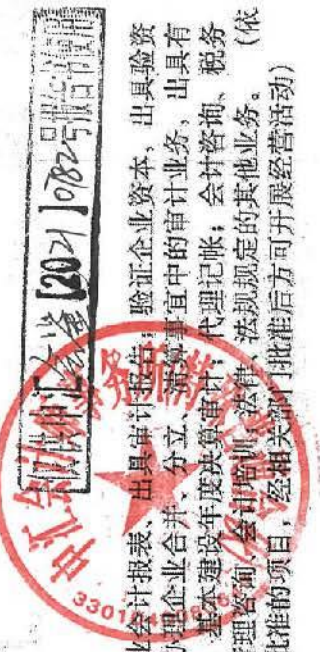 仅供中汇会鉴[2021]0782号报告书使用
业会计报表、出具审计报告；验证企业资本，出具验资
办理企业合并、分立、清算事宜中的审计业务，出具有
基本建设年度决算审计；代理记帐；会计咨询、税务
管理咨询、会计培训；法律、法规规定的其他业务。（依
批准的项目，经相关部门批准后方可开展经营活动）
中汇会计师事务所